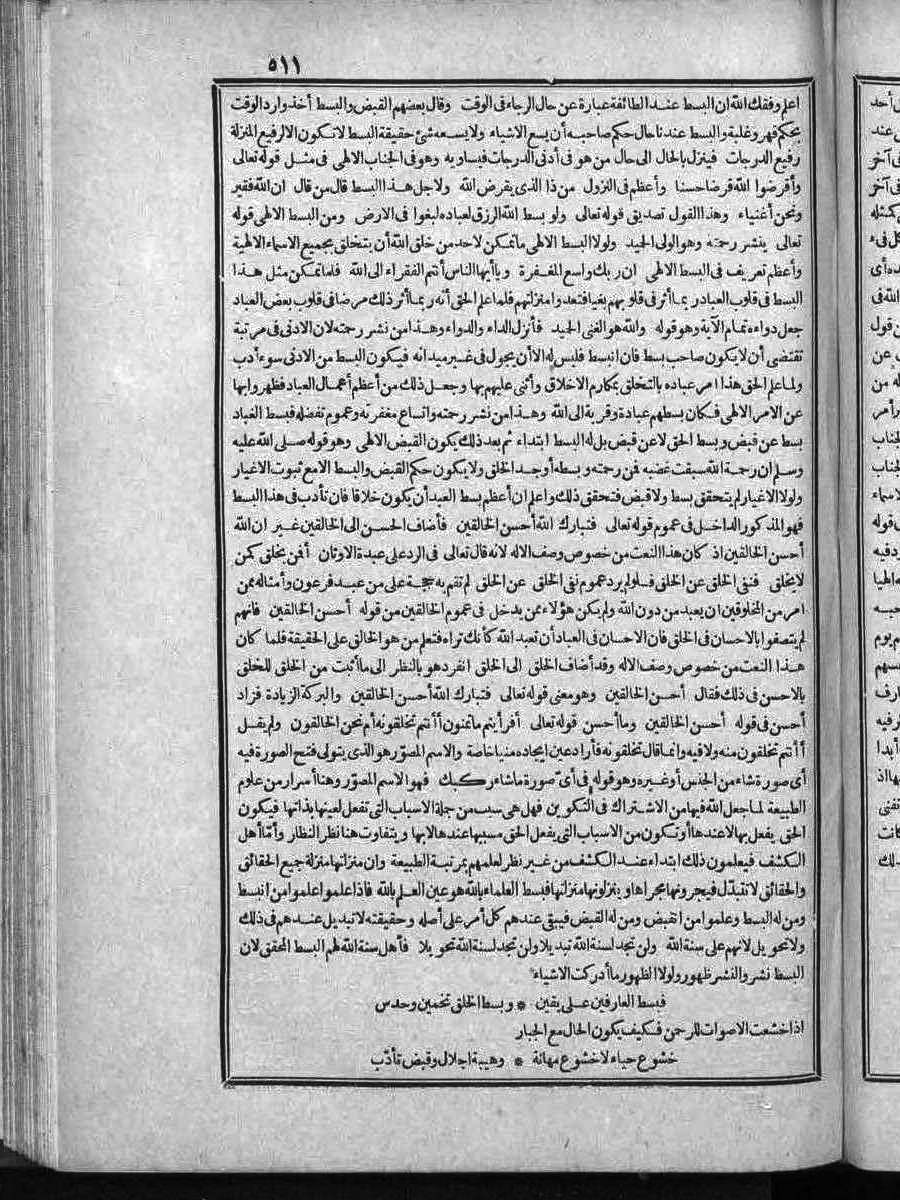 ٥١١
اعلم وفقك الله ان البسط عند الطائفة عبارة عن حال الرجاء فى الوقت وقال بعضهم القبض والبسط أخذ وارد الوقت
بحكم قهر وغلبة والبسط عندنا حال حكم صاحبه أن يسع الاشياء ولا يسعه شئ حقيقة البسط لا تكون الا لرفيع المنزلة
رفيع الدرجات فينزل بالحال الى حال من هو فى أدنى الدرجات فيساويه وهو فى الجناب الالهى فى مثل قوله تعالى
وأقرضوا الله قرضا حسنا وأعظم فى النزول من ذا الذى يقرض الله ولاجل هذا البسط قال من قال ان الله فقير
ونحن أغنياء وهذا القول تصديق قوله تعالى ولو بسط الله الرزق لعباده لبغوا فى الارض ومن البسط الالهى قوله
تعالى ينشر رحمته وهو الولى الحيد ولولا البسط الالهى ما تمكن لاحد من خلق الله أن يتخلق بجميع الاسماء الالهية
وأعظم تعريف فى البسط الالهى ان ربك واسع المغفرة ويا أيها الناس أنتم الفقراء الى الله فلما تمكن مثل هذا
البسط فى قلوب العباد ربما أثر فى قلوبهم بغيا فتعدوا منزلتهم فلما علم الحق أنه ربما أثر ذلك مرضا فى قلوب بعض العباد
جعل دواءه تمام الآية وهو قوله والله هو الغنى الحيد فأنزل الداء والدواء وهذا من نشر رحمته لان الادنى فى مرتبة
تقتضى أن لا يكون صاحب بسط فان انبسط فليس له الا أن يجول فى غير ميدانه فيكون البسط من الادنى سوء أدب
ولما علم الحق هذا امر عباده بالتخلق بمكارم الاخلاق وأثنى عليهم بها وجعل ذلك من أعظم أعمال العباد فظهروا بها
عن الامر الالهى فكان بسطهم عبادة وقربة الى الله وهذا من نشر رحمته واتساع مغفرته وعموم تفضله فبسط العباد
بسط عن قبض وبسط الحق لا عن قبض بل له البسط ابتداء ثم بعد ذلك يكون القبض الالهى وهو قوله صلى الله عليه
وسلم ان رحمة الله سبقت غضبه فمن رحمته وبسطه أوجد الخلق ولا يكون حكم القبض والبسط الا مع ثبوت الاغيار
ولولا الاغيار لم يتحقق بسط ولا قبض فتحقق ذلك واعلم ان أعظم بسط العبد أن يكون خلاقا فان تأدب فى هذا البسط
فهو المذكور الداخل فى عموم قوله تعالى فتبارك الله أحسن الخالقين فأضاف الحسن الى الخالقين غير ان الله
أحسن الخالقين اذ كان هذا النعت من خصوص وصف الاله لانه قال تعالى فى الرد على عبدة الاوثان أفمن يخلق كمن
لا يخلق فنفى الخلق عن الخلق فلو لم يرد عموم نفى الخلق عن الخلق لم تقم به حجة على من عبد فرعون وأمثاله ممن
امر من المخلوقين ان يعبد من دون الله ولم يكن هؤلاء ممن يدخل فى عموم الخالقين من قوله أحسن الخالقين فانهم
لم يتصفوا بالاحسان فى الخلق فان الاحسان فى العباد أن تعبد الله كأنك تراه فتعلم من هو الخالق على الحقيقة فلما كان
هذا النعت من خصوص وصف الاله وقد أضاف الخلق الى الخلق انفرد هو بالنظر الى ما أثبت من الخلق للخلق
بالاحسن فى ذلك فقال أحسن الخالقين وهو معنى قوله تعالى فتبارك الله أحسن الخالقين والبركة الزيادة فزاد
أحسن فى قوله أحسن الخالقين وما أحسن قوله تعالى أفرأيتم ما تمنون أأنتم تخلقونه أم نحن الخالقون ولم يقل
أأنتم تخلقون منه ولا فيه وانما قال تخلقونه فأراد عين ايجاده منيا خاصة والاسم المصوّر هو الذى يتولى فتح الصورة فيه
أى صورة شاء من الجنس أو غيره وهو قوله فى أىّ صورة ما شاء ركبك فهو الاسم المصوّر وهنا أسرار من علوم
الطبيعة لما جعل الله فيها من الاشتراك فى التكوين فهل هى سبب من جملة الاسباب التى تفعل لعينها بذاتها فيكون
الحق يفعل بها لا عندها أو تكون من الاسباب التى يفعل الحق مسببها عندها لا بها ويتفاوت هنا نظر النظار وأمّا أهل
الكشف فيعلمون ذلك ابتداء عند الكشف من غير نظر لعلمهم بمرتبة الطبيعة وان منزلتها منزلة جميع الحقائق
والحقائق لا تتبدّل فيجرونها مجراها وينزلونها منزلتها فبسط العلماء بالله هو عين العلم بالله فاذا علموا علموا من انبسط
ومن له البسط وعلموا من انقبض ومن له القبض فيبقى عندهم كل أمر على أصله وحقيقته لا تبديل عندهم فى ذلك
ولا تحويل لانهم على سنة الله ولن تجد لسنة الله تبديلا ولن تجد لسنة الله تحويلا فأهل سنة الله لهم البسط المحقق لان
البسط نشر والنشر ظهور ولولا الظهور ما أدركت الاشياء
فبسط العارفين على يقين * وبسط الخلق تخمين وحدس
اذا خشعت الاصوات للرحمن فكيف يكون الحال مع الجبار
خشوع حياء لا خشوع مهانة * وهيبة اجلال وقبض تأدّب